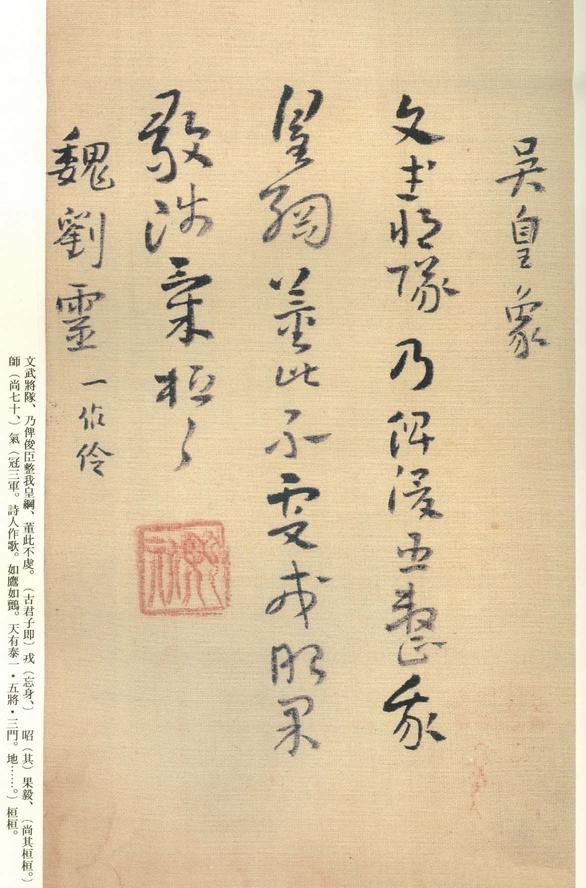 吳皇象
文武將隊乃俾俊臣整我
皇綱董此不虔戎昭果
毅師氣桓々
魏劉靈 一作伶
文武將隊、乃俾俊臣整我皇綱、董此不虔。（古君子即）戎（忘身、） 昭（其）果毅、（尚其桓桓。）
師（尚七十、）氣（冠三軍。詩人作歌。如鷹如鸇。天有泰一・五將・三門。地……。）桓桓。